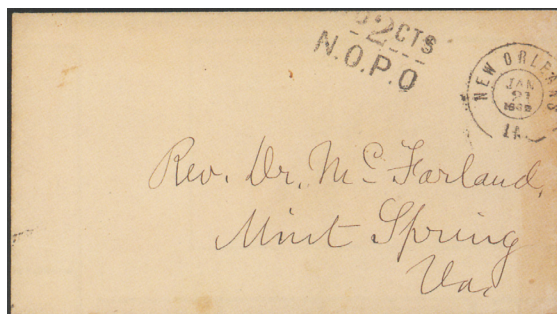 2 CTS
N.O.P.O
NEW ORLEANS
JAN
21
Rev. Dr. McFarland,
Mint Spring
Va,